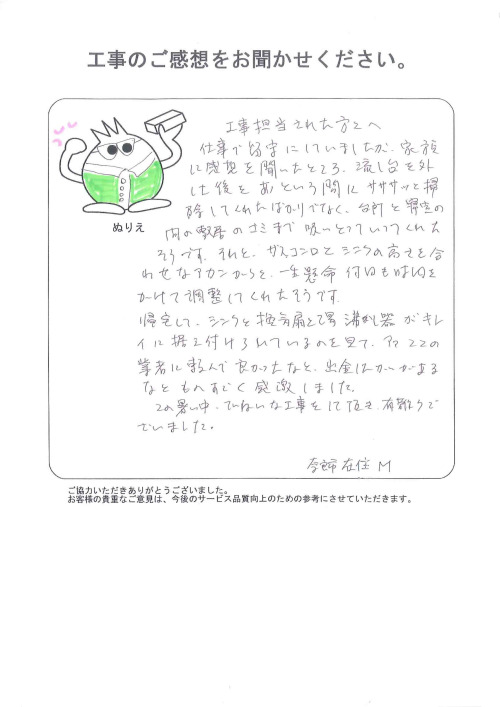 工事のご感想をお聞かせください。
ぬりえ
工事担当された方々へ
仕事で留守にしていましたが、家族
に感想を聞いたところ、流し台を外
した後をあという間にササッと掃
除してくれたばかりでなく、台所と寝室の
間の敷居のゴミまで吸いとっていってくれた
そうです。それと、ガスコンロとシンクの高さを合
わせなアカンからと、一生懸命何回も時間を
かけて調整してくれたそうです。
帰宅して、シンクと換気扇と湯沸し器がキレ
イに据え付けられているのを見て、アァココの
業者に頼んで良かったなと、出金はかいがある
なとものすごく感激しました。
この暑い中、ていねいな工事をして頂き、有難うご
ざいました。
在住 M
ご協力いただきありがとうございました。
お客様の貴重なご意見は、今後のサービス品質向上のための参考にさせていただきます。